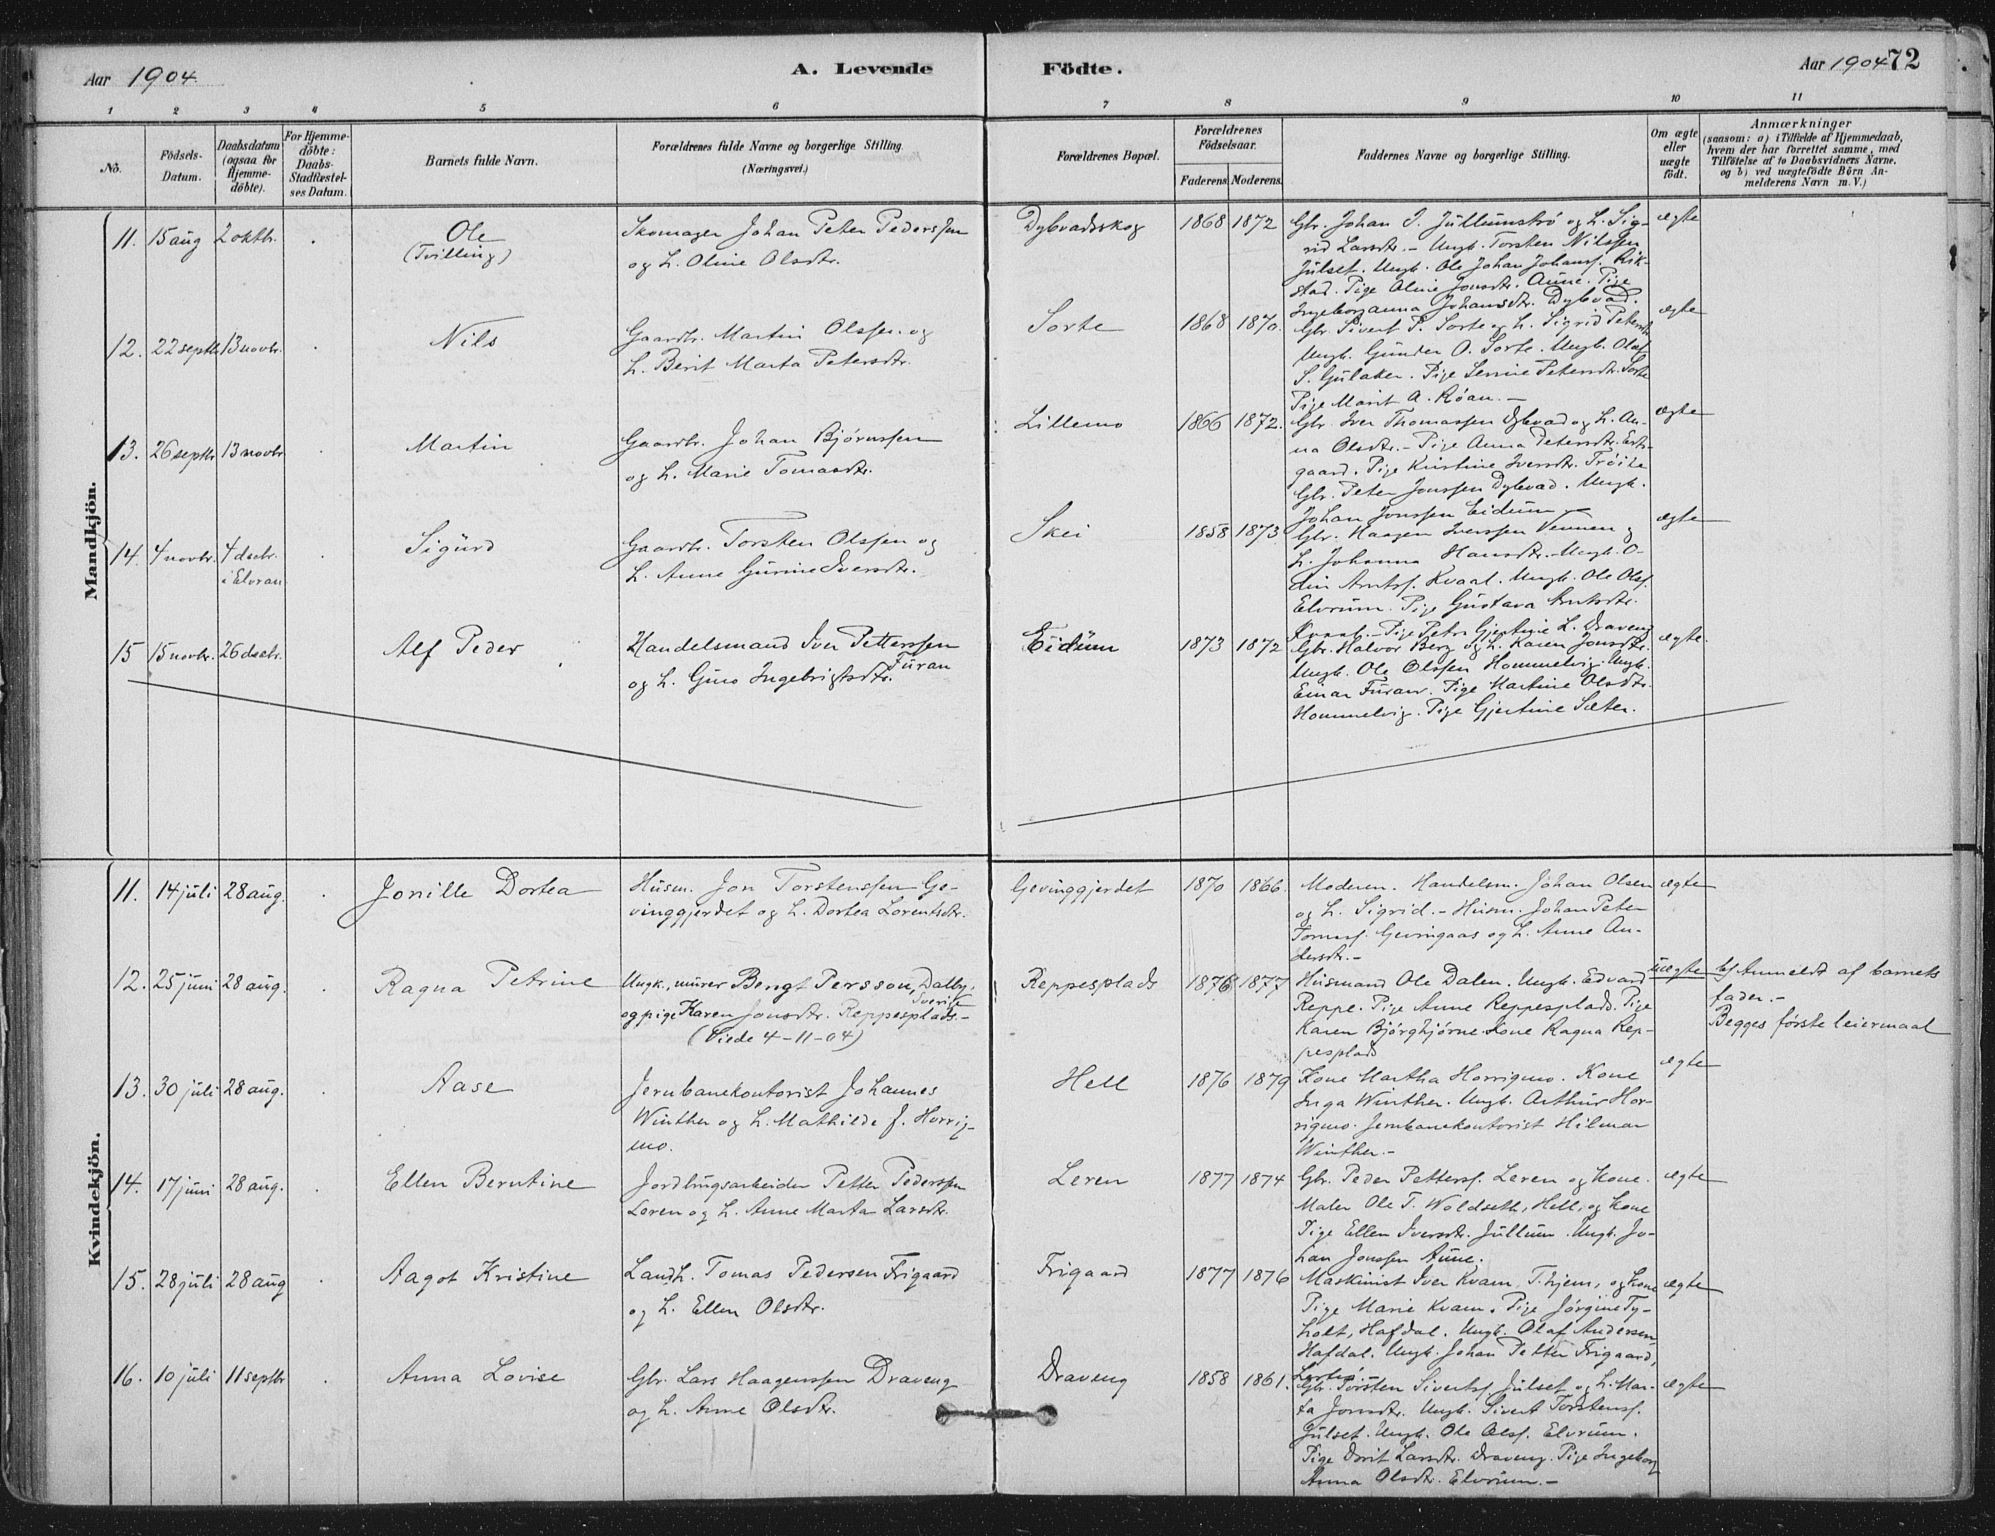 Aar 1904
A. Levende
Födte.
Aar 1904
72
1
2
3
4
5
6
7
8
9
10
11
No.
Födsels-
Datum.
Daabsdatum
(ogsaa for
Hjemme-
döbte).
For Hjemme-
döbte:
Daabs-
Stadfæstel-
ses Datum.
Barnets fulde Navn.
Forældrenes fulde Navne og borgerlige Stilling.
(Næringsvei.)
Forældrenes Bopæl.
Forældrenes
Födselsaar.
Faderens.
Moderens.
Faddernes Navne og borgerlige Stilling.
Om ægte
eller
uægte
født.
Anmærkninger
(saasom: a) i Tilfælde af Hjemmedaab,
hvem der har forrettet samme, med
Tilföielse af to Daabsvidners Navne.
og b) ved uægtefödte Börn An-
melderens Navn m. V.)
Mandkjön.
11. 15 aug 2 oktbr. Ole
(Tvilling)
Skomager Johan Peter Pederssen
og h. Oline Olsdtr.
Dybvadsskog 1868 1872
Gbr. Johan J. Jullumstrø og h. Sig-
rid Larsdtr. - Ungk. Torsten Nilssen
Julset. Ungk. Ole Johan Johans. Rik-
stad. Pige Oline Jonsdtr. Aune. Pige
Ingeborganna Johansdtr. Dybvad.
ægte
12. 22 septbr 13 novbr. Nils
Gaardbr. Martin Olssen og
h. Berit Marta Petersdtr.
Sorte 1868 1870.
Gbr. Sivert P. Sorte og h. Sigrid Petersdtr
Ungk. Gunder O. Sorte. Ungk. Olaf
S. Gulaker. Pige Serine Petersdtr. Sorte
Pige Marit A. Røan. -
ægte
13. 26 septbr 13 novbr Martin
Gaardbr. Johan Bjørnssen
og h. Marie Tomasdtr.
Lillemo 1866 1872.
Gbr. Iver Thomassen Dybvad og h. An-
na Olsdtr. - Pige Anna Petersdtr. Erts-
gaard. Pige Kristine Iversdtr. Trøite
Gbr. Peter Jonssen Dybvad. Ungk.
Johan Jonssen Eidum
ægte
14. 4 novbr. 4 decbr.
i Elvran
Sigurd
Gaardbr. Torsten Olssen og
h. Anne Gurine Iversdtr.
Skei 1858 1873
Gbr. Haagen Iverssen Vennen og
h. Johanna Hansdtr. Ungk. O-
din Arntsf. Kvaal. Ungk. Ole Olsf.
Elvrum. Pige Gustava Arntsdtr.
Kvaal. - Pige Petra Gjertine L. Draveng
ægte
15 15 novbr. 26 decbr. Alf Peder
Handelsmand Iver Petterssen
Furan
og h. Guro Ingebrigtsdtr.
Eidum 1873 1872
Gbr. Halvor Berg og h. Karen Jonsdtr.
Ungk. Ole Olssen Hommelvig. Ungk.
Einar Furan. Pige Martine Olsdtr.
Hommelvig. Pige Gjertine Sæter.
ægte.
Kvindekjön.
11. 14 juli 28 aug. Jonille Dortea
Husm. Jon Torstenssen Ge-
vinggjerdet og h. Dortea Lorentsdtr.
Gevinggjerdet 1870 1866.
Moderen. Handelsm. Johan Olsen
og h. Sigrid. - Husm. Johan Peter
Tomasf. Gevingaas og h. Anne An-
dersdtr. -
ægte
12. 25 juni 28 aug. Ragna Petrine
Ungk., murer Bengt Persson, Dalby,
Sverige
og pige Karen Jonsdtr. Reppesplads. -
(Viede 4-11-04)
Reppesplads 1876 1877
Husmand Ole Dalen. Ungk. Edvard
Reppe. Pige Anne Reppesplads. Pige
Karen Bjørghjørne. Kone Ragna Rep-
pesplads
uægte
b) Anmeldt af barnets
fader. -
Begges første leiermaal
13. 30 juli 28 aug. Aase
Jernbanekontorist Johannes
Winther og h. Mathilde f. Horrig-
mo.
Hell 1876 1879
Kone Martha Horrigmo. Kone
Inga Winther. Ungk. Arthur Hor-
rigmo. Jernbanekontorist Hilmar
Winther. -
ægte
14. 17 juni 28 aug. Ellen Berntine
Jordbrugsarbeider Petter Pederssen
Leren og h. Anne Marta Larsdtr.
Leren 1877 1874
Gbr. Peder Pettersf. Leren og Kone.
Maler Ole T. Woldseth, Hell, og Kone
Pige Ellen Iversdtr. Jullum. Ungk. Jo-
han Jonssen Aune.
ægte
15. 28 juli 28 aug Aagot Kristine
Landh. Tomas Pedersen Frigaard
og h. Ellen Olsdtr.
Frigaard 1877 1876
Maskinist Iver Kvam, T.hjem, og Kone
Pige Marie Kvam. Pige Jørgine Ty-
holt, Hafdal. Ungk. Olaf Andersen
Hafdal. Ungk. Johan Petter Frigaard,
ægte
16. 10 juli 11 septbr Anna Lovise
Gbr. Lars Haagenssen Draveng
og h. Anne Olsdtr.
Draveng 1858 1861.
Gbr. Torsten Sivertsf. Julset og h. Mar-
ta Jonsdtr. Ungk. Sivert Torstensf.
Julset. Ungk. Ole Olsf. Elvrum.
Pige Berit Larsdtr. Draveng. Pige Ingeborg
Anna Olsdtr. Elvrum. -
ægte